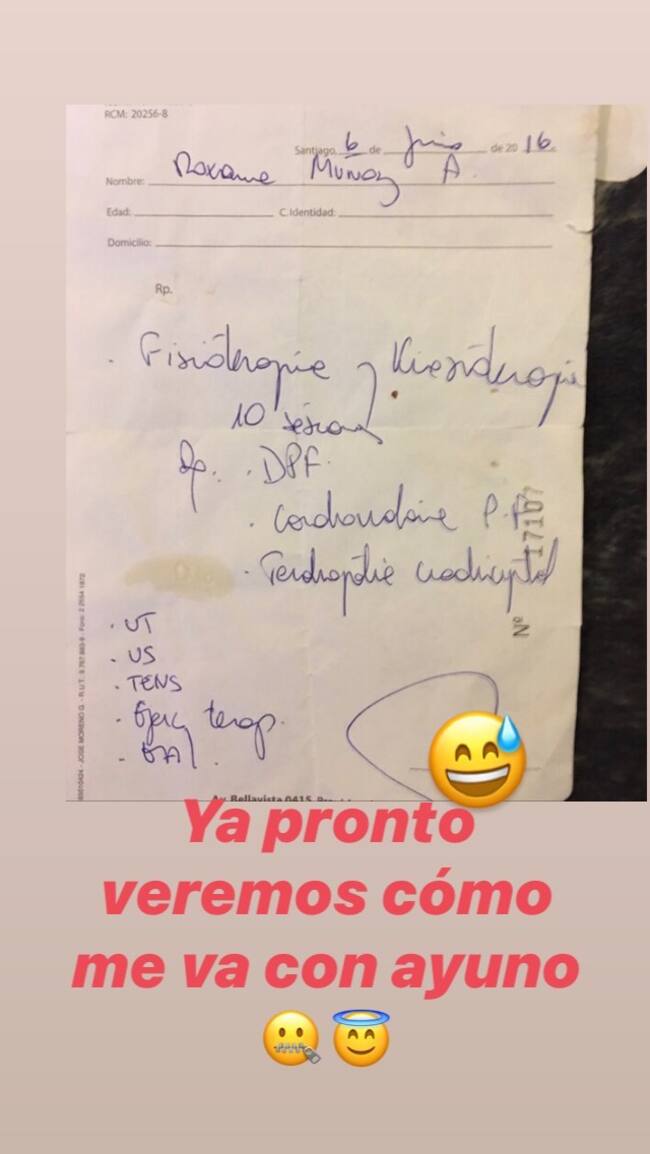 RCM: 20256-8
Santiago, 6 de Junio de 2016.
Nombre: Roxane Munoz A.
Edad: C.Identidad:
Domicilio:
Rp.
. Fisioterapie y Kiesioterapia
10 sesiones
Dp. . DPF.
. Condromalacie P.F
. Tendinopatie cuadricipital
. UT
. US
. TENS
. Ejerc terap.
Nº 17107
Av. Bellavista 0415,
Ya pronto
veremos cómo
me va con ayuno